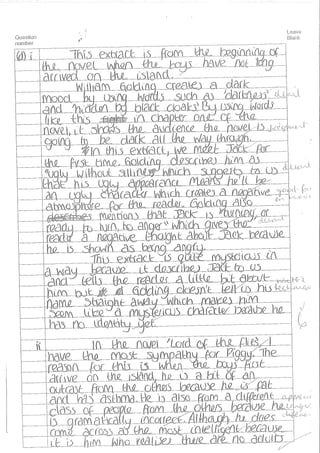 Question number
Leave Blank
(d) i This extract is from the beginning of
the novel when the boys have not long
arrived on the island.
William Golding creates a dark
mood by using words such as 'darkness'
and 'hidden by black cloaks'. By using words
like this in chapter one of the
novel, it shows the audience the novel is
going to be dark all the way through.
In this extract, we meet Jack for
the first time. Golding describes him as
'ugly without silliness' which suggests to us
that his ugly appearance means he'll be
an ugly character which creates a negative
atmosphere for the reader. Golding also
describes mentions that Jack is 'turning, or
ready to turn, to anger' which gives the
reader a negative thought about Jack because
he is shown as being angry.
This extract is quite mysterious in
a way because it describes Jack to us
and tells the reader a little bit about
him but Golding doesn't tell us his
name straight away which makes him
seem like a mysterious character because he
has no identity yet.
6
ii In the novel 'Lord of the flies', I
have the most sympathy for Piggy. The
reason for this is when the boys first
arrive on the island, he is a bit of an
outcast from the others because he is fat
and has asthma. He is also from a different
class of people from the others because he
is gramatically incorrect. Although he does
come across as the most intelligent because
it is him who realises there are no adults